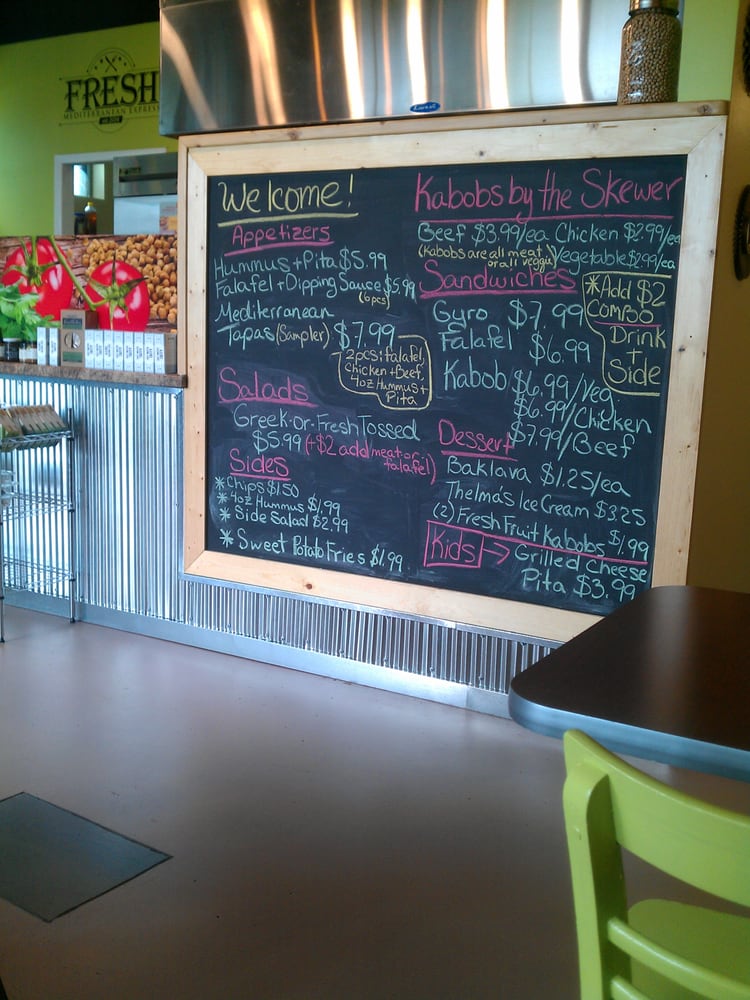 FRESH
MEDITERRANEAN EXPRESS
Welcome!
Appetizers
Hummus + Pita $5.99
Falafel + Dipping Sauce $5.99
(6pcs)
Mediterranean
Tapas (Sampler) $7.99
2pcs falafel,
Chicken + Beef,
4oz Hummus +
Pita
Salads
Greek-or-Fresh Tossed
$5.99 (+$2 add meat-or-
falafel)
Sides
* Chips $1.50
* 4oz Hummus $1.99
* Side Salad $2.99
* Sweet Potato Fries $1.99
Kabobs by the Skewer
Beef $3.99/ea Chicken $2.99/ea
(Kabobs are all meat
or all veggie) Vegetable $2.99/ea
Sandwiches
Gyro $7.99
Falafel $6.99
Kabob $6.99/Veg
$6.99/Chicken
$7.99/Beef
* Add $2
Combo
Drink
+
Side
Dessert
Baklava $1.25/ea
Thelma's Ice Cream $3.25
(2) Fresh Fruit Kabobs $1.99
Kids → Grilled Cheese
Pita $3.99